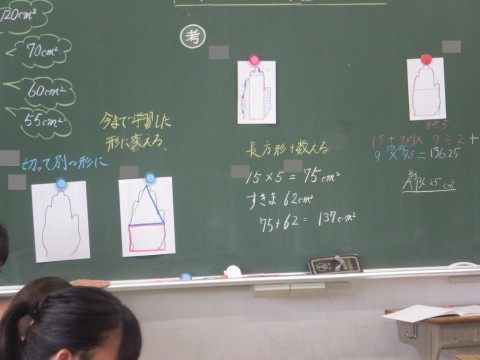 120cm²
70cm²
60cm²
55cm²
考
今まで学習した
形に変える。
切って別の形に
長方形+数える
15×5=75cm²
すきま62cm²
75+62=137cm²